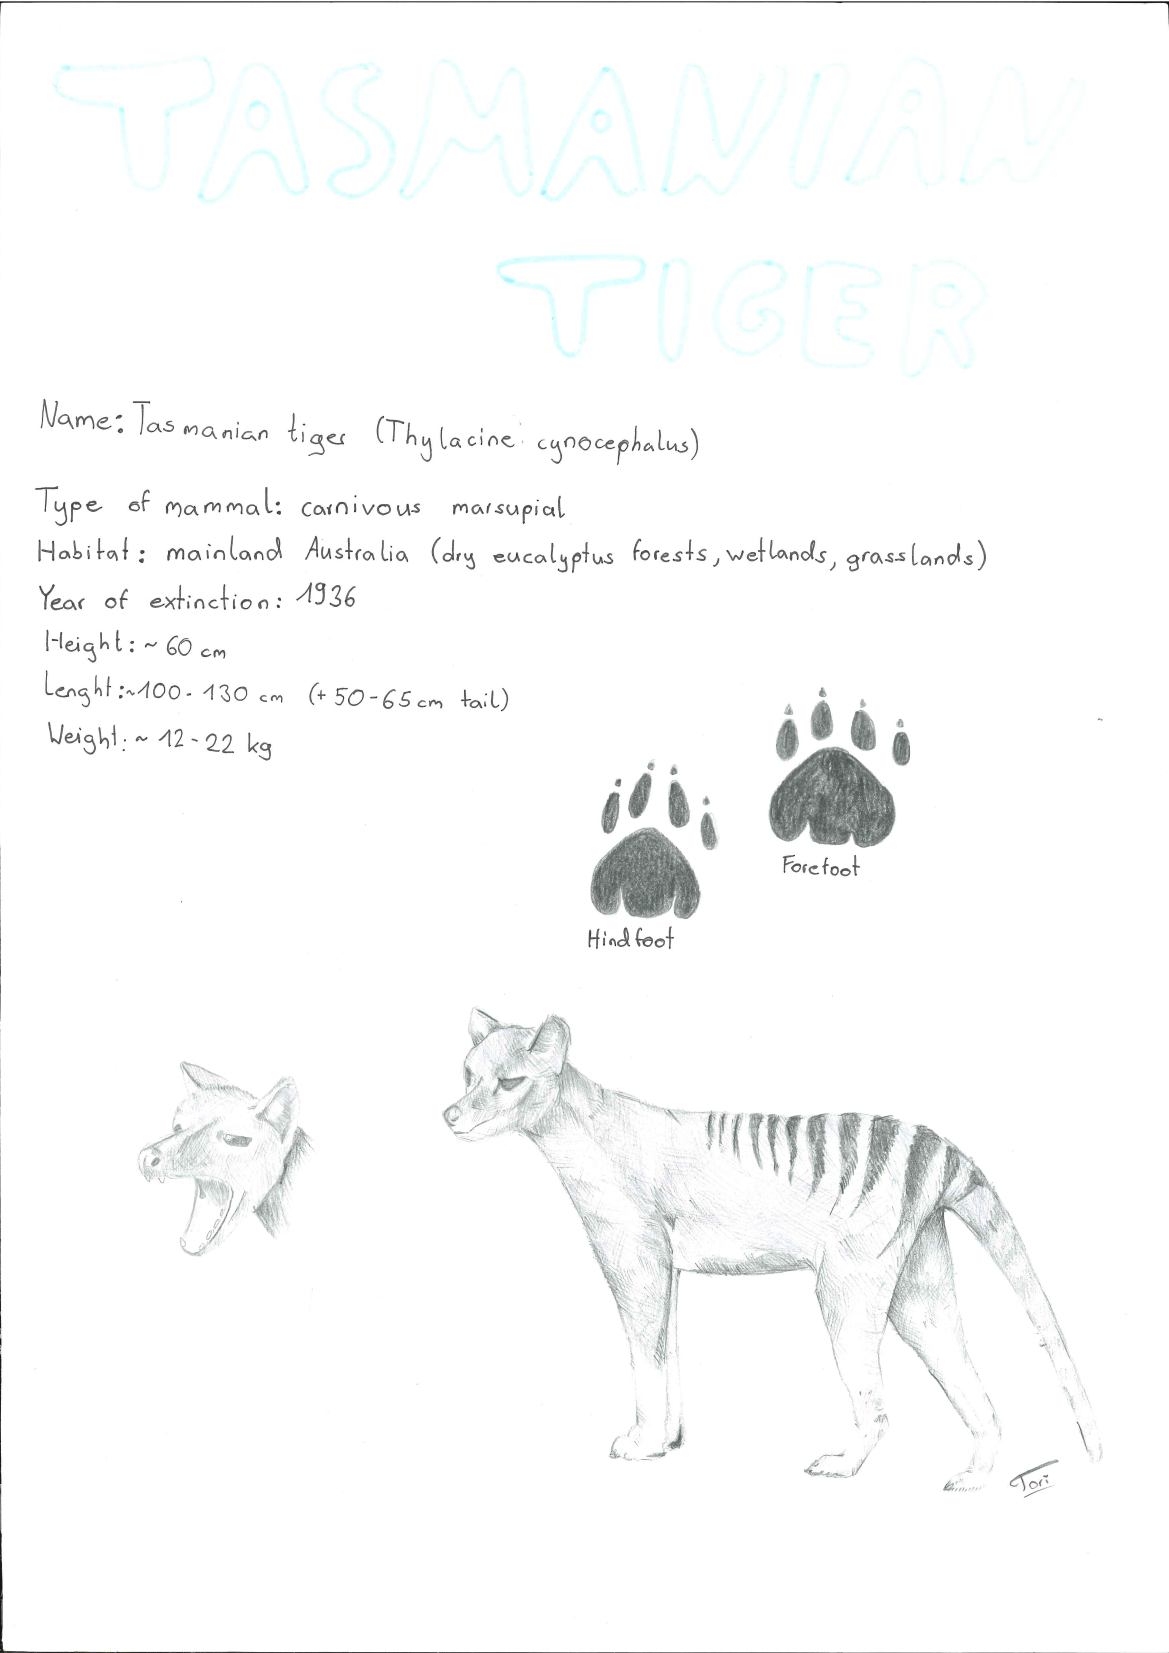 TASMANIAN
TIGER
Name: Tasmanian tiger (Thylacine cynocephalus)
Type of mammal: carnivous marsupial
Habitat: mainland Australia (dry eucalyptus forests, wetlands, grasslands)
Year of extinction: 1936
Height: ~ 60 cm
Lenght: ~100 - 130 cm (+ 50-65 cm tail)
Weight: ~ 12 - 22 kg
Forefoot
Hind foot
Tori